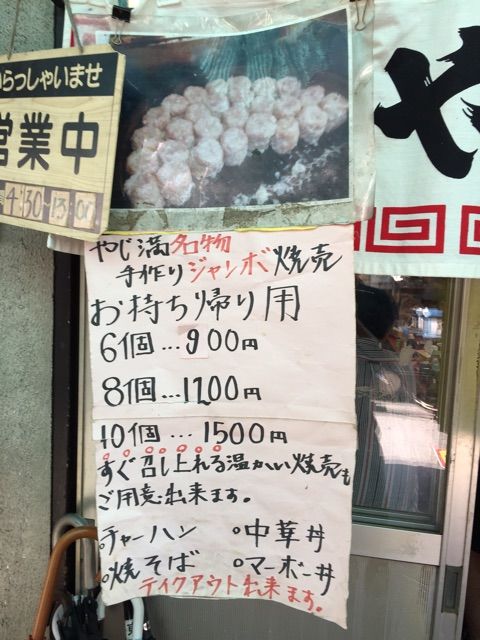 いらっしゃいませ
営業中
4:30~13:00
や
やじ満名物
手作りジャンボ焼売
お持ち帰り用
6個…900円
8個…1200円
10個…1500円
すぐ召し上れる温かい焼売も
ご用意出来ます。
○チャーハン ○中華丼
○焼そば ○マーボー丼
テイクアウト出来ます。